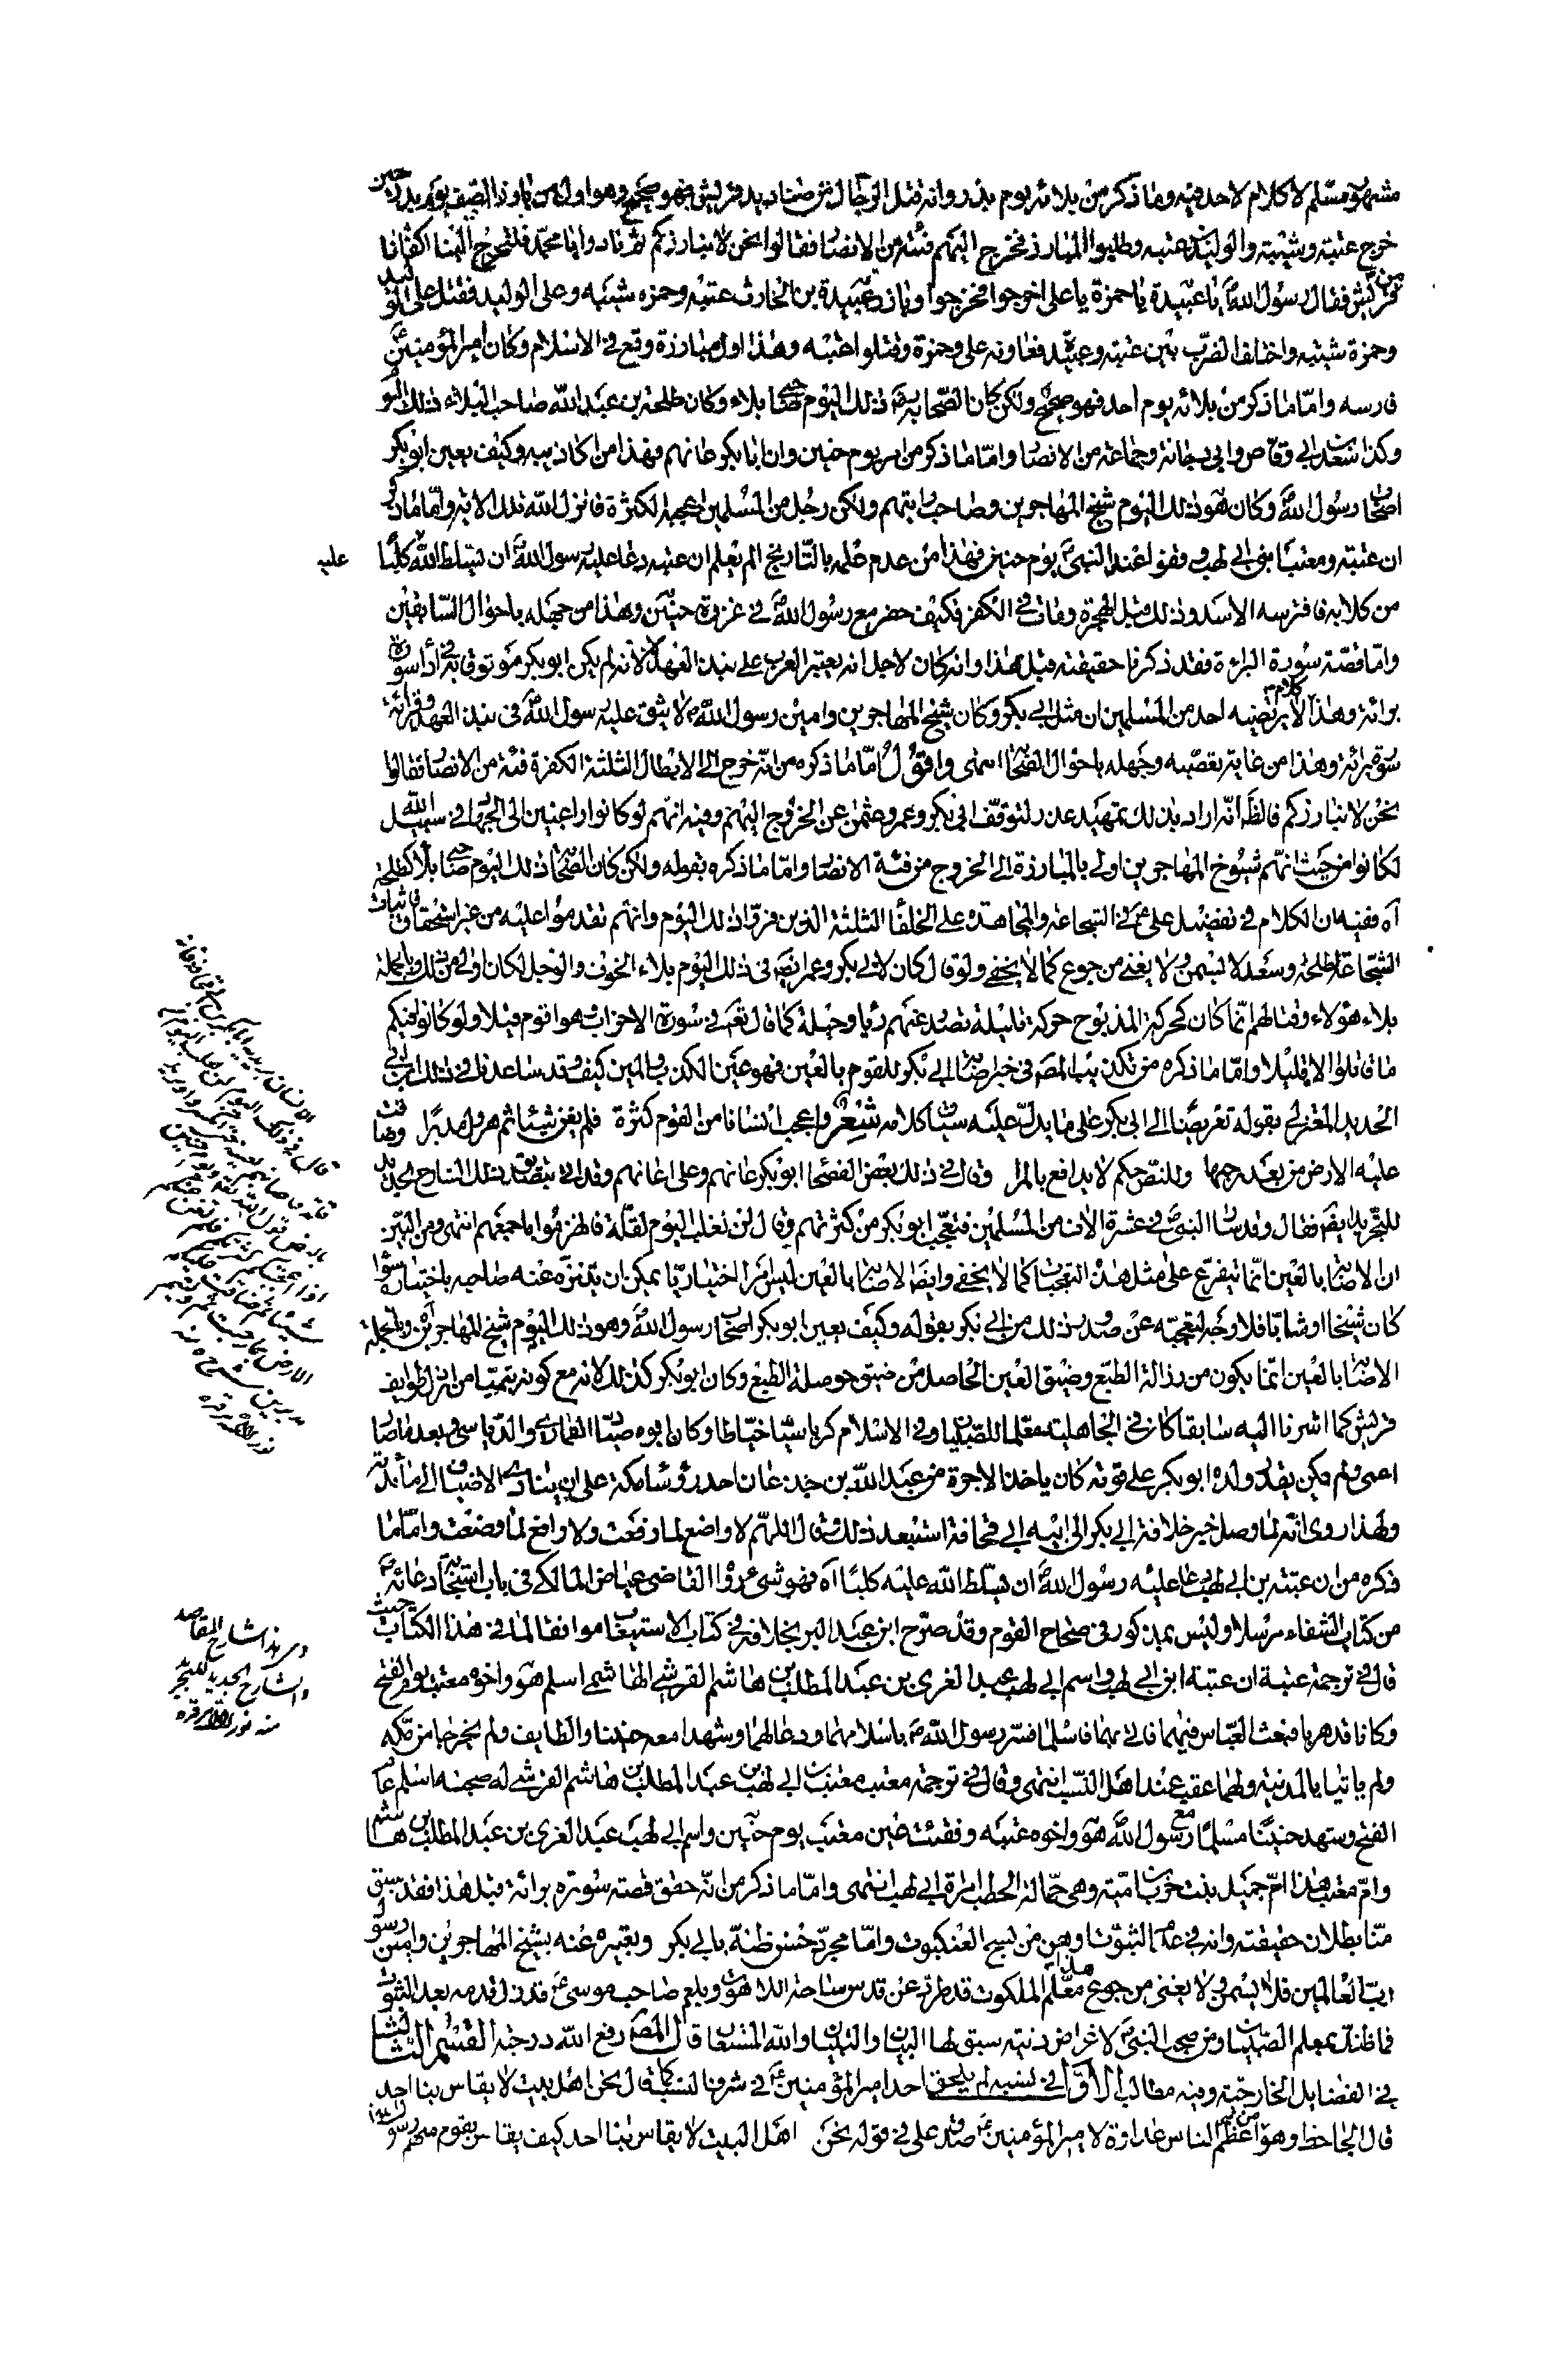 مشهور مسلم لا كلام لاحد فيه وما ذكر من بلائه يوم بدر وانه قتل الرجال من صناديد قريش فهو صحيح وهو اول من بارز الصف يوم بدر حين
خرج عتبة وشيبة والوليد بن عتبه وطلبوا المبارز فخرج اليهم فئة من الانصار فقالوا نحن لا نبارزكم ثم نادوا يا محمد فلتخرج الينا اكفائنا
من قريش فقال رسول الله ص يا عبيدة يا حمزة يا علي اخرجوا فخرجوا وبارز عبيدة بن الحارث عتبه وحمزه شيبه وعلى الوليد فقتل على الوليد
وحمزة شيبه واختلف الضرب بين عتبه وعبيده فعاونه على وحمزة وقتلوا عتبه وهذا اول مبارزة وقع في الاسلام وكان امير المؤمنين
فارسه واما ما ذكر من بلائه يوم احد فهو صحيح ولكن كان الصحابه ذلك اليوم صاحبي بلاء وكان طلحة بن عبد الله صاحب البلاء ذلك اليوم
وكذا سعد بن ابي وقاص وابي دجانة وجماعة من الانصار واما ما ذكر من امر يوم حنين وان ابا بكر عانهم فهذا من اكاذيبه وكيف يعين ابو بكر
اصحاب رسول الله ص وكان هو ذلك اليوم شيخ المهاجرين وصاحب رايتهم ولكن رجل من المسلمين اعجبه الكثرة فانزل الله تلك الاية واما ما ذكر
ان عتبة ومعتبا ابنى ابي لهب وقفوا عند النبي ص يوم حنين فهذا من عدم علمه بالتاريخ الم يعلم ان عتبه دعا عليه رسول الله ص ان يسلط الله عليه كلبا
من كلابه فافترسه الاسد وذلك قبل الهجرة ومات في الكفر فكيف حضر مع رسول الله ص في غزوة حنين وهذا من جهله باحوال السابقين
واما قصة سورة البراءة فقد ذكرنا حقيقته قبل هذا وانه كان لاجل انه يعتبر العرب على نبذ العهد لا لانه لم يكن ابو بكر موثوقا به في اداء سورة
برائة وهذا كلام لا يرتضيه احد من المسلمين ان مثل ابي بكر وكان شيخ المهاجرين وامين رسول الله ص لا يثق عليه رسول الله ص في نبذ العهد وقرائة
سورة برائة وهذا من غاية تعصبه وجهله باحوال الصحابة انتهى واقول اما ما ذكره من انه خرج الى الابطال الثلثة الكفرة فئة من الانصار فقالوا
نحن لا نبارزكم فالظ انه اراد بذلك تمهيد عذر لتوقف ابي بكر وعمر وعثمن عن الخروج اليهم وفيه انهم لو كانوا راغبين الى الجهاد في سبيل الله
لكانوا من حيث انهم شيوخ المهاجرين اولى بالمبارزة الى الخروج من فئة الانصار واما ما ذكره بقوله ولكن كان الصحابة ذلك اليوم صاحبي بلاء كطلحة
آه ففيه ان الكلام في تفضيل علي ع في الشجاعة والمجاهدة على الخلفا الثلثة الذين فروا ذلك اليوم وانهم تقدموا عليه من غير استحقاق فاثبات
الشجاعة لطلحة وسعد لا يسمن ولا يغني من جوع كما لا يخفى ولو قال كان لابي بكر وعمر ايضا في ذلك اليوم بلاء الخوف والوجل لكان اولى من ذلك وبالجملة
بلاء هؤلاء وقتالهم انما كان كحركة المذبوح حركة قليلة تصدر عنهم رئاء وحيلة كما قال تع في سورة الاحزاب ولو كانوا فيكم
ما قاتلوا الا قليلا واما ما ذكره من تكذيب المص في خبر اصابة ابي بكر للقوم بالعين فهو عين الكذب والمين كيف وقد ساعدنا في ذلك ابن ابي
الحديد المعتزلى بقوله تعريضا الى ابي بكر على ما يدل عليه سياق كلامه شعر واعجب انسانا من القوم كثرة فلم يغن شيئا ثم هرول مدبرا وضاقت
عليه الارض من بعد رحبها وللنص حكم لا يدافع بالمرا وقال في ذلك بعض الفضحا ابو بكر عانهم وعلى اعانهم
للتجريد ايضا فقال وقد سار النبي ص في عشرة الاف من المسلمين فتعجب ابو بكر من كثرتهم وقال لن نغلب اليوم لقلة فانهزموا باجمعهم انتهى ومن البين
ان الاصابة بالعين انما يتفرع على مثل هذه التعجبات كما لا يخفى وايضا الاصابة بالعين ليس امرا اختياريا يمكن ان يتنزه عنه صاحبه باختياره سواء
كان شيخا او شابا فلا وجه لتعجبه عن صدور ذلك من ابي بكر بقوله وكيف يعين ابو بكر اصحاب رسول الله ص وهو ذلك اليوم شيخ المهاجرين وبالجملة
الاصابة بالعين انما يكون من رذالة الطبع وضيق العين الحاصل من ضيق حوصلة الطبع وكان ابو بكر كذلك لانه مع كونه تيميا من ارذل طوايف
قريش كما اشرنا اليه سابقا كان في الجاهلية معلما للصبيان وفي الاسلام خياطا وكان ابوه صياد القمارى والدباسى وبعد ما صار
اعمى ولم يكن يقدر ولده ابو بكر على قوته كان ياخذ الاجرة من عبد الله بن جذعان احد رؤساء مكة على ان ينادى الاضياف الى مائدته
ولهذا روى انه لما وصل خبر خلافة ابي بكر الى ابيه ابي قحافة استبعد ذلك وقال اللهم لا واضع لما رفعت ولا رافع لما وضعت واما ما
ذكره من ان عتبة بن ابي لهب دعا عليه رسول الله ص ان يسلط الله عليه كلبا آه فهو شيء رواه القاضي عياض المالكي في باب استجابة دعائه ع
من كتاب الشفاء مرسلا وليس بمذكور في صحاح القوم وقد صرح ابن عبد البر بخلافه في كتاب الاستيعاب موافقا لما في هذا الكتاب حيث
قال في ترجمة عتبة ان عتبة ابن ابي لهب واسم ابي لهب عبد العزى بن عبد المطلب بن هاشم القرشي الهاشمي اسلم هو واخوه معتب يوم الفتح
وكانا قد هربا فبعث العباس فيهما فاتى بهما فاسلما فسر رسول الله ص باسلامهما ودعا لهما وشهدا معه حنينا والطايف ولم يخرجا من مكه
ولم ياتيا بالمدينة ولهما عقب عند اهل النسب انتهى وقال في ترجمة معتب معتب بن ابي لهب بن عبد المطلب بن هاشم القرشي له صحبة اسلم عام
الفتح وشهد حنينا مسلما مع رسول الله ص هو واخوه عتبه وفقئت عين معتب يوم حنين واسم ابي لهب عبد العزى بن عبد المطلب بن هاشم
وام معتب هذا ام جميل بنت حرب بن امية وهي حمالة الحطب امراة ابي لهب انتهى واما ما ذكر من انه حقق قصة سورة برائة قبل هذا فقد سبق
منا بطلان حقيقته وانه في عدم الثبوت اوهن من نسج العنكبوت واما مجرد حسن ظنه بابي بكر وتعبيره عنه بشيخ المهاجرين وامين رسول
رب العالمين فلا يسمن ولا يغني من جوع معلم الملكوت قد طرد عن قدس ساحة اللاهوت وبلعم صاحب موسى ع قد زل قدمه بعد الثبوت
فما ظنك بمعلم الصبيان ومن صحب النبي ص لاغراض دنية سبق لها البيان والتبيان والله المستعان قال المص رفع الله درجته القسم الثالث
في الفضايل الخارجية وفيه مطالب الاول في نسبه لم يلحق احد امير المؤمنين ع في شرف النسب كما قال نحن اهل بيت لا يقاس بنا احد
قال الجاحظ وهو من اعظم الناس عداوة لامير المؤمنين ع صدق على في قوله نحن اهل البيت لا يقاس بنا احد كيف يقاس بقوم منهم رسول الله
ومن هذا شارح المقاصد
والشارح الجديد للتجريد
منه نور الله مرقده